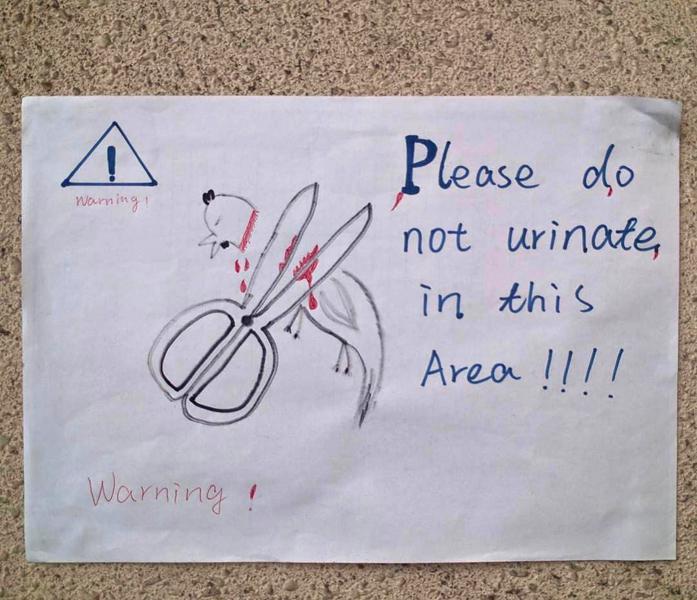 !
Warning!
Please do
not urinate
in this
Area !!!!
Warning !